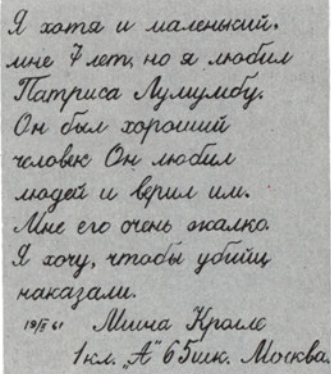 Я хотя и маленький.
мне 7 лет, но я любил
Патриса Лумумбу.
Он был хороший
человек Он любил
людей и верил им.
Мне его очень жалко.
Я хочу, чтобы убийц
наказали.
19/II 61 Миша Кролле
1кл. „А" 65шк. Москва.